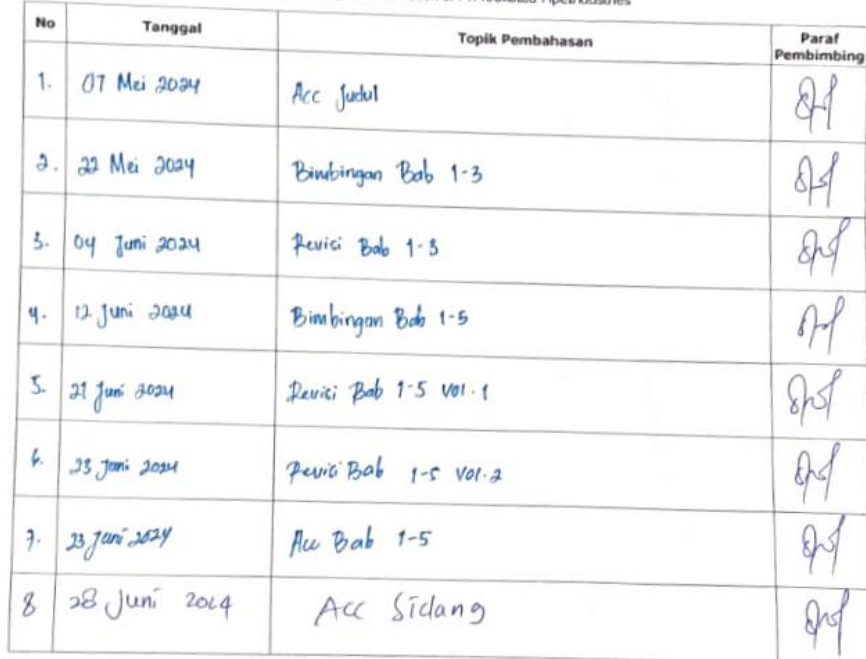 No Tanggal Topik Pembahasan Paraf Pembimbing
1. 07 Mei 2024 Acc Judul
2. 22 Mei 2024 Bimbingan Bab 1-3
3. 04 Juni 2024 Revisi Bab 1-3
4. 12 Juni 2024 Bimbingan Bab 1-5
5. 21 Juni 2024 Revisi Bab 1-5 Vol.1
6. 23 Juni 2024 Revisi Bab 1-5 Vol.2
7. 23 Juni 2024 Acc Bab 1-5
8 28 Juni 2024 Acc Sidang